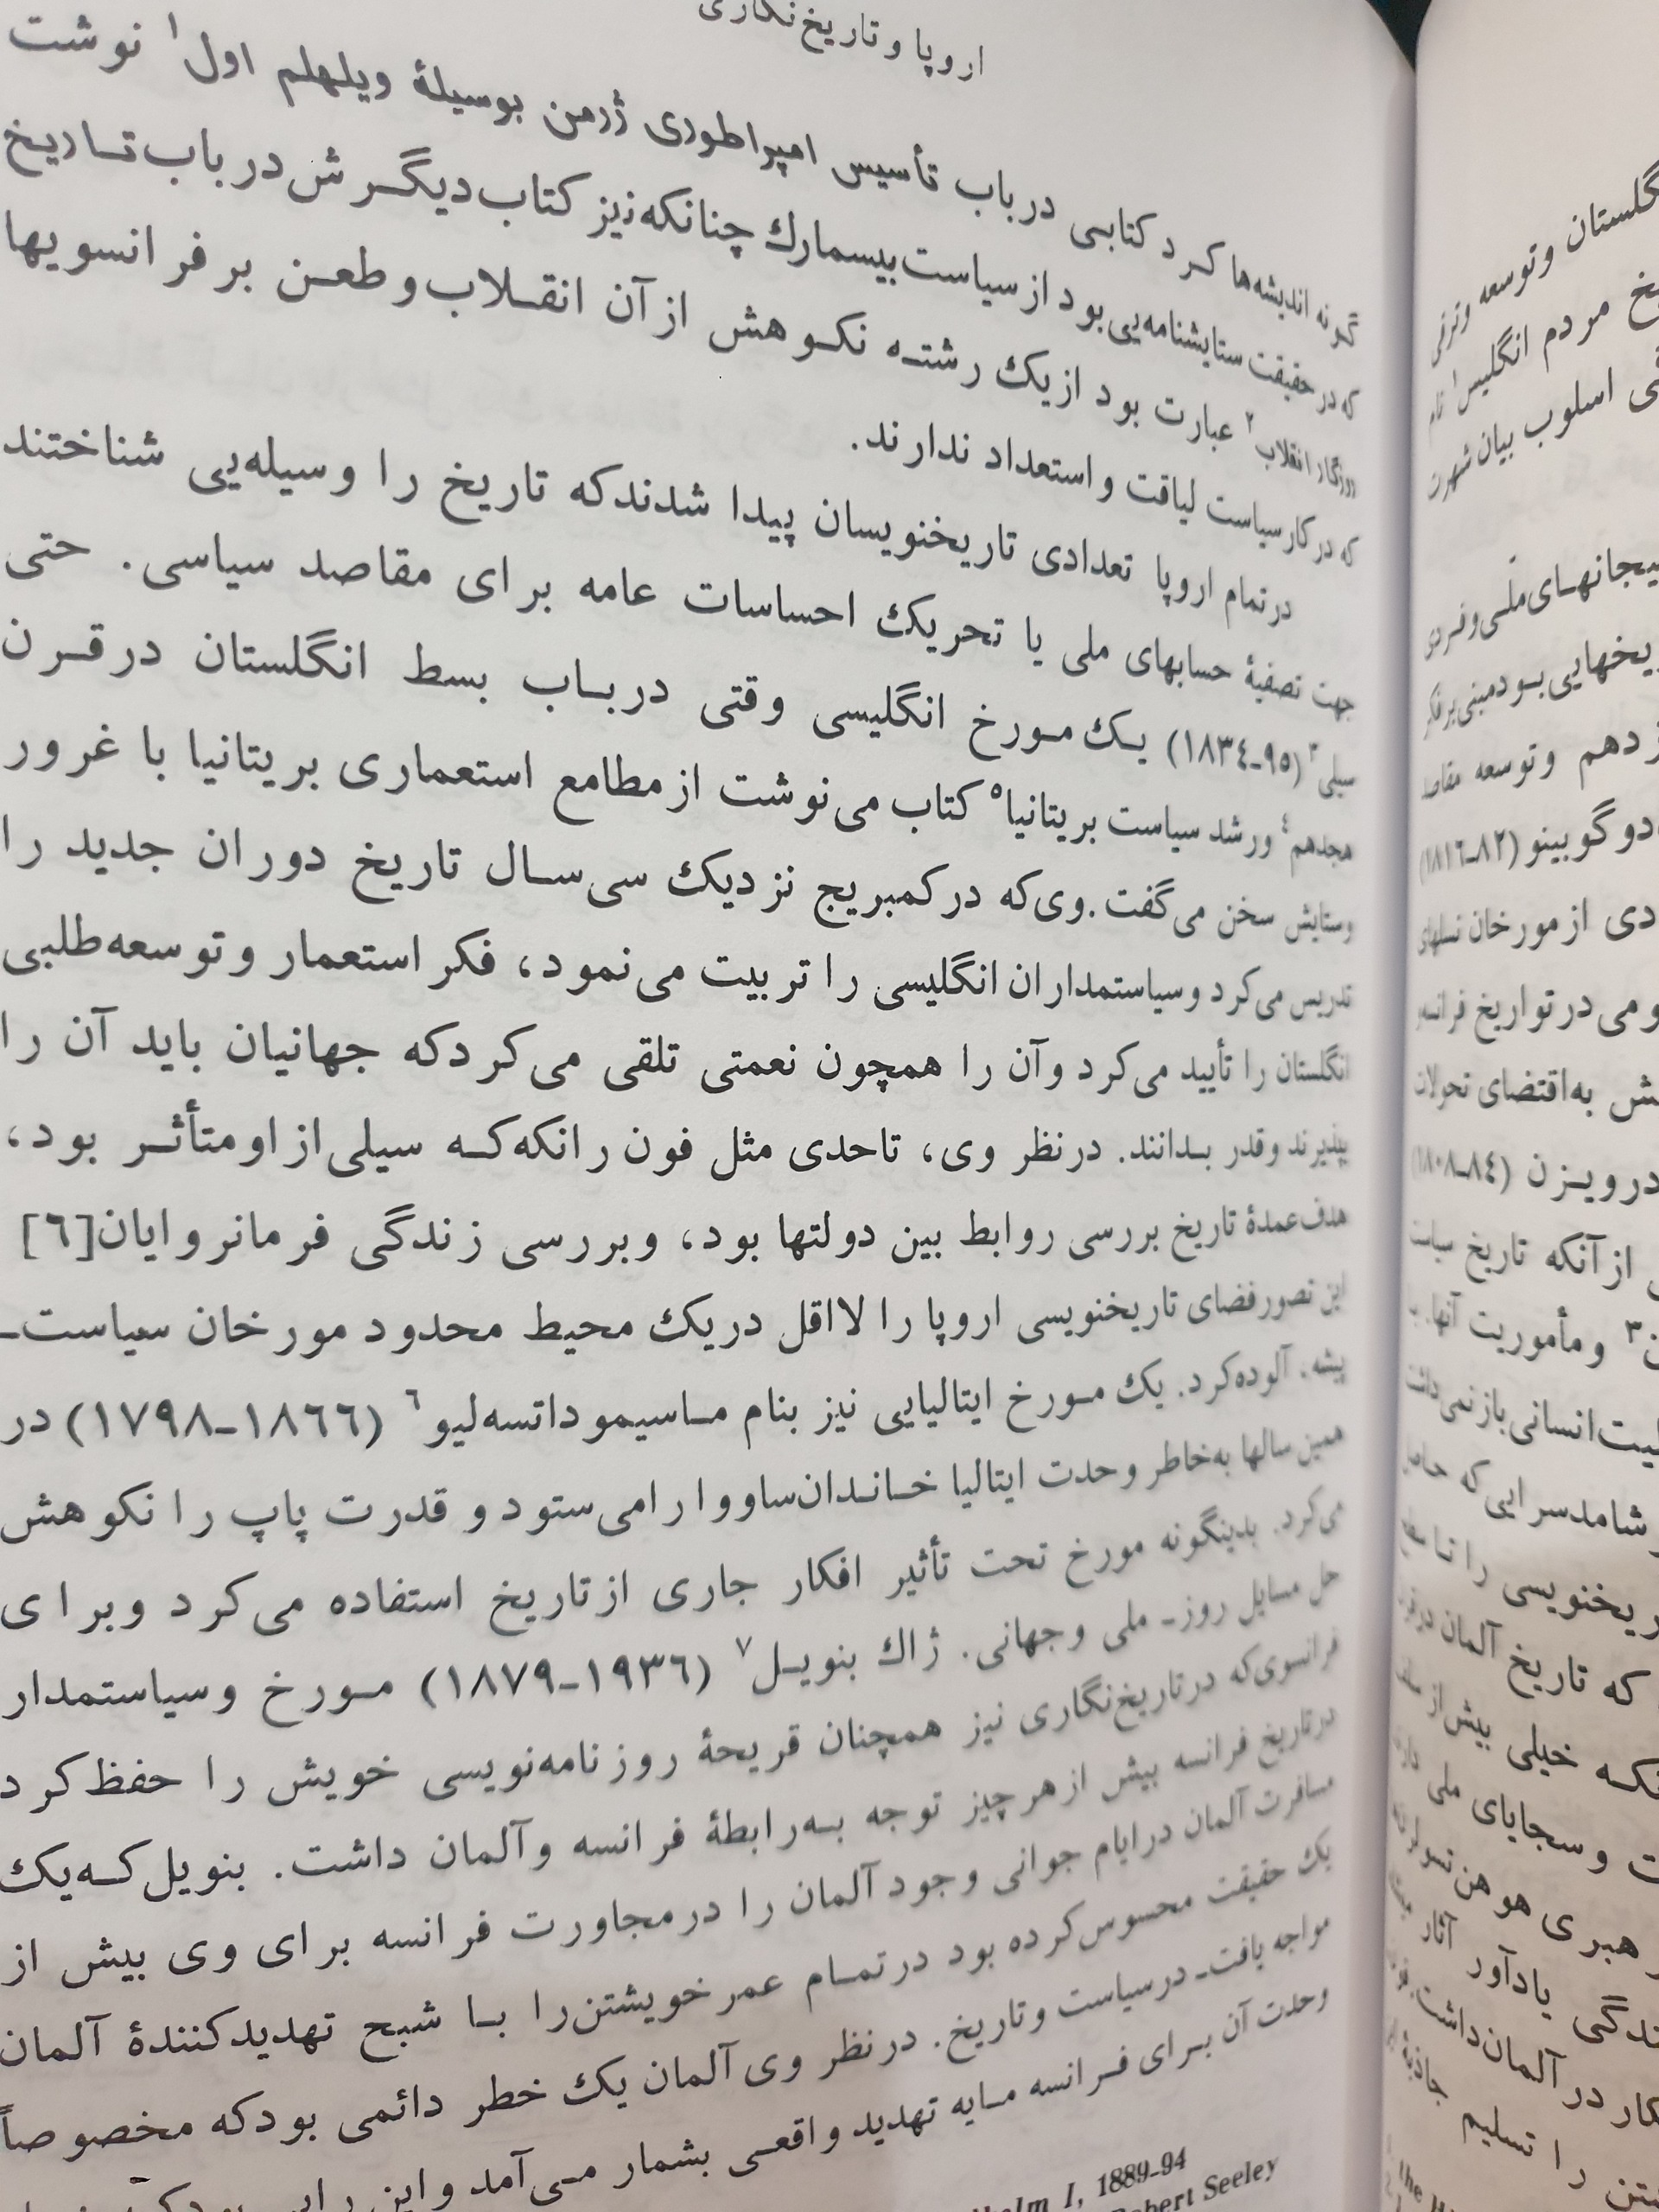 اروپا و تاریخ‌نگاری
گونه اندیشه‌ها کرد کتابی در باب تأسیس امپراطوری ژرمن بوسیلهٔ ویلهلم اول۱ نوشت
که در حقیقت ستایشنامه‌یی بود از سیاست بیسمارك چنانکه نیز کتاب دیگرش در باب تاریخ
روزگار انقلاب۲ عبارت بود از یك رشته نکوهش از آن انقلاب و طعن بر فرانسویها
که در کار سیاست لیاقت و استعداد ندارند.
در تمام اروپا تعدادی تاریخنویسان پیدا شدند که تاریخ را وسیله‌یی شناختند
جهت تصفیهٔ حسابهای ملی یا تحریك احساسات عامه برای مقاصد سیاسی. حتی
سیلی۳ (۹۵-۱۸۳٤) یك مورخ انگلیسی وقتی در باب بسط انگلستان در قرن
هجدهم٤ و رشد سیاست بریتانیا۵ کتاب می‌نوشت از مطامع استعماری بریتانیا با غرور
و ستایش سخن می‌گفت. وی که در کمبریج نزدیك سی سال تاریخ دوران جدید را
تدریس می‌کرد و سیاستمداران انگلیسی را تربیت می‌نمود، فکر استعمار و توسعه‌طلبی
انگلستان را تأیید می‌کرد و آن را همچون نعمتی تلقی می‌کرد که جهانیان باید آن را
بپذیرند و قدر بدانند. در نظر وی، تاحدی مثل فون رانکه که سیلی از او متأثر بود،
هدف عمدهٔ تاریخ بررسی روابط بین دولتها بود، و بررسی زندگی فرمانروایان[٦]
این تصور فضای تاریخنویسی اروپا را لااقل در یك محیط محدود مورخان سیاست-
پیشه. آلوده کرد. یك مورخ ایتالیایی نیز بنام ماسیمو داتسه‌لیو٦ (۱۸٦٦-۱۷۹۸) در
همین سالها به‌خاطر وحدت ایتالیا خاندان ساووا را می‌ستود و قدرت پاپ را نکوهش
می‌کرد. بدینگونه مورخ تحت تأثیر افکار جاری از تاریخ استفاده می‌کرد و برای
حل مسایل روز- ملی و جهانی. ژاك بنویل۷ (۱۹۳٦-۱۸۷۹) مورخ و سیاستمدار
فرانسوی که در تاریخ‌نگاری نیز همچنان قریحهٔ روزنامه‌نویسی خویش را حفظ کرد
در تاریخ فرانسه بیش از هر چیز توجه به رابطهٔ فرانسه و آلمان داشت. بنویل که یك
مسافرت آلمان در ایام جوانی وجود آلمان را در مجاورت فرانسه برای وی بیش از
یك حقیقت محسوس کرده بود در تمام عمر خویشتن را با شبح تهدیدکنندهٔ آلمان
مواجه یافت- در سیاست و تاریخ. در نظر وی آلمان یك خطر دائمی بود که مخصوصاً
وحدت آن برای فرانسه مایه تهدید واقعی بشمار می‌آمد و این
I, 1889-94
Robert Seeley
گلستان و توسعه و ترقی
مردم انگلیس۱
اسلوب بیان شهرت
ملی و فردی
بود مبنی بر فکر
دهم و توسعه مقاصد
دو گوبینو (۸۲-۱۸۱٦)
از مورخان نسلهای
در تواریخ فرانسه
به‌اقتضای تحولات
درویزن (۸٤-۱۸۰۸)
از آنکه تاریخ سیاست
۳ و مأموریت آنها
انسانی باز نمی‌داشت
که حاصل
را تا سطح
که تاریخ آلمان در قرن
خیلی بیش از
و سجایای ملی
رهبری هوهن‌تسولرنها
یادآور آثار
در آلمان داشت
را تسلیم جاذبهٔ
the